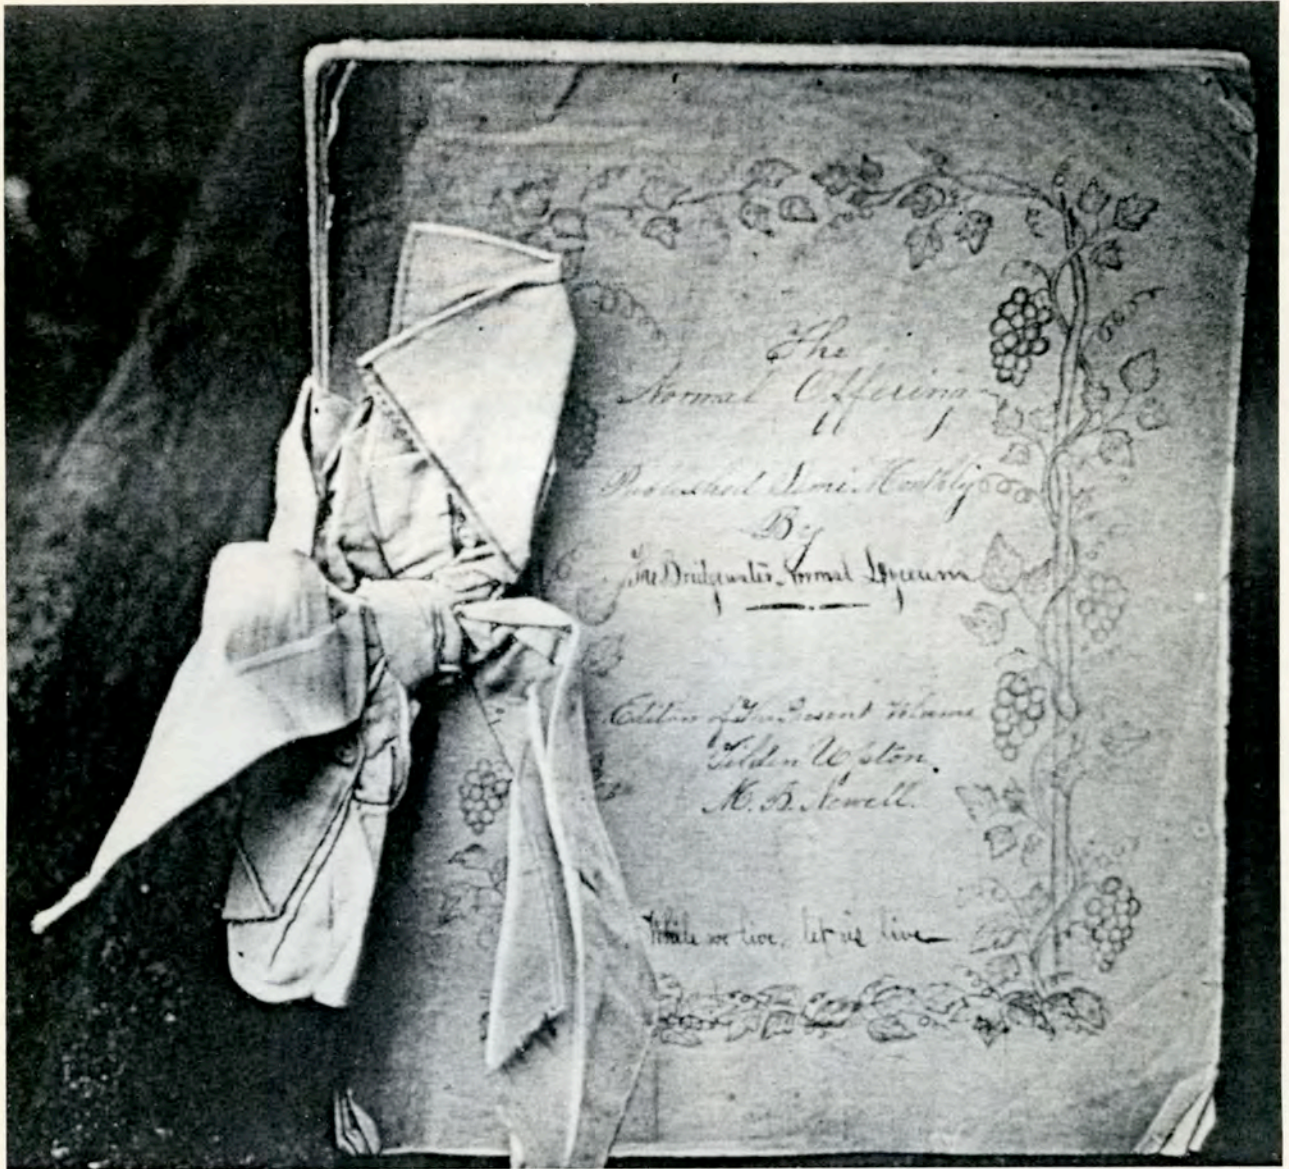 The
Normal Offering
Published Semi Monthly
By
The Bridgewater Normal Lyceum
Editors of The Present Volume
Tilden Upton.
M. B. Newell.
While we live, let us live